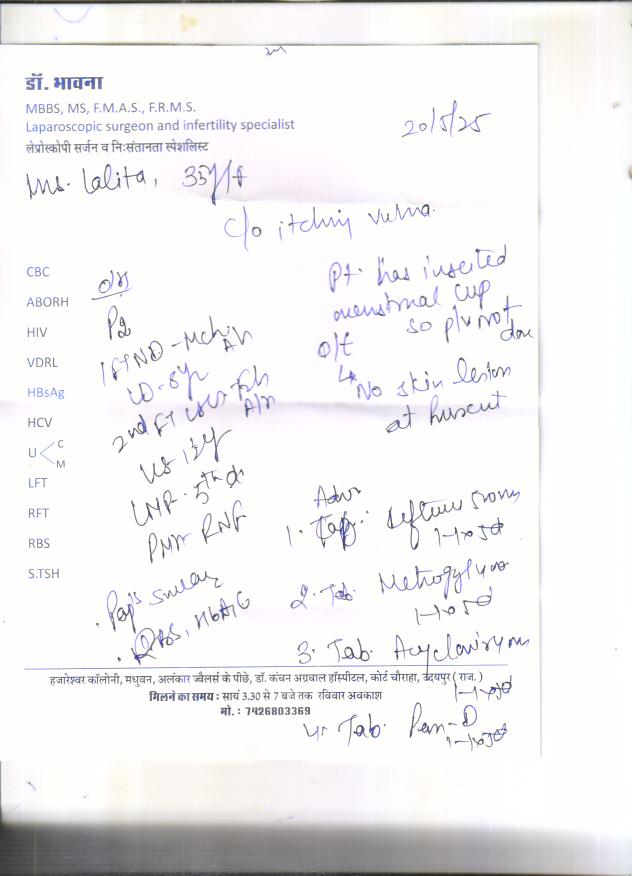 डॉ. भावना
MBBS, MS, F.M.A.S., F.R.M.S.
Laparoscopic surgeon and infertility specialist
लेप्रोस्कोपी सर्जन व नि:संतानता स्पेशलिस्ट
20/5/25
Ms. Lalita, 35y/f
c/o itching vulva.
CBC
ABORH
HIV
VDRL
HBsAg
HCV
U C
M
LFT
RFT
RBS
S.TSH
P2
1 FTND - Mch
2nd FT
LMP - 5th
PMH RNF
Pap's smear
RBS, HbA1C
Pt. has inserted
menstrual cup
so p/v not
done
o/E
No skin lesion
at present
Adv
1. Tab.
1-1x5d
2. Tab. Metrogyl
1-1x5d
3. Tab. Acyclovir
हजारेश्वर कॉलोनी, मधुवन, अलंकार ज्वैलर्स के पीछे, डॉ. कंचन अग्रवाल हॉस्पीटल, कोर्ट चौराहा, उदयपुर ( राज. )
मिलने का समय : सायं 3.30 से 7 बजे तक रविवार अवकाश
मो. : 7426803369
4. Tab. Pan-D